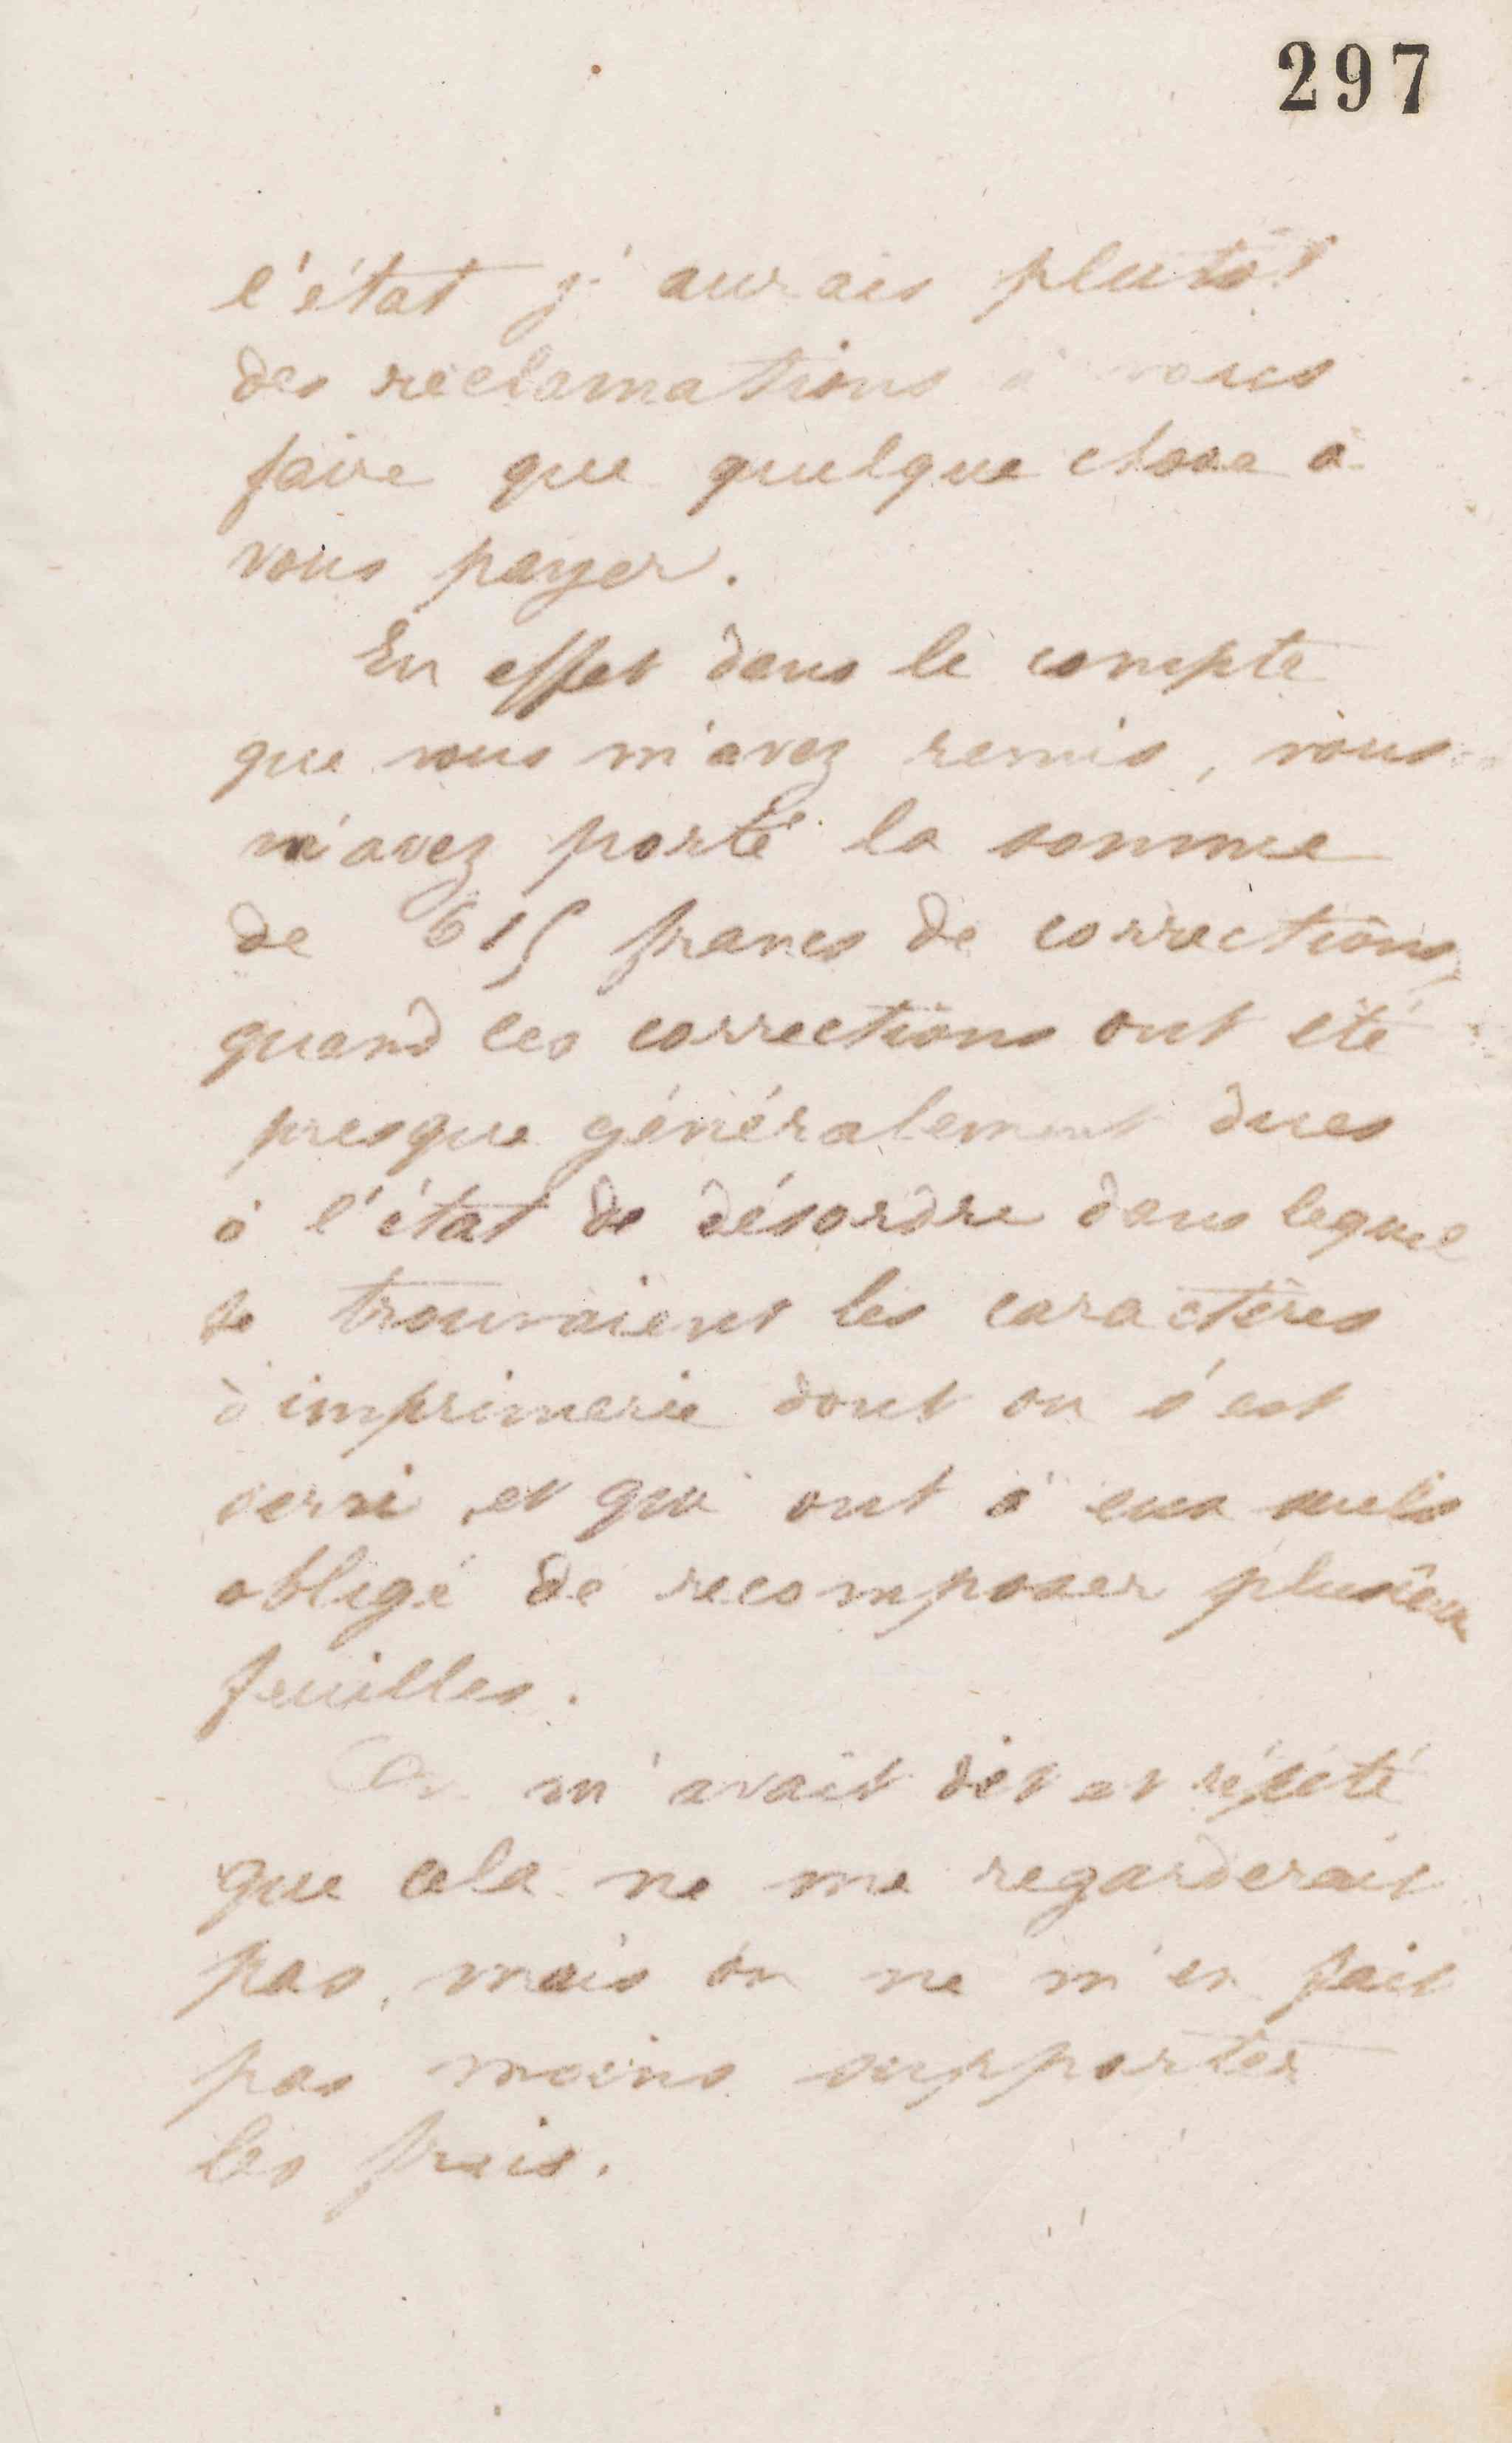 297
l'état j'aurais plutôt
des réclamations à vous
faire que quelque chose à
vous payer.
En effet dans le compte
que vous m'avez remis, vous
m'avez porté la somme
de 615 francs de corrections,
quand les corrections ont été
presque généralement dues
à l'état de désordre dans lequel
se trouvaient les caractères
d'imprimerie dont on s'est
servi et qui ont à eux seuls
obligé de recomposer plusieurs
feuilles.
On m'avait dit et répété
que cela ne me regarderait
pas, mais on ne m'en fait
pas moins supporter
les frais.